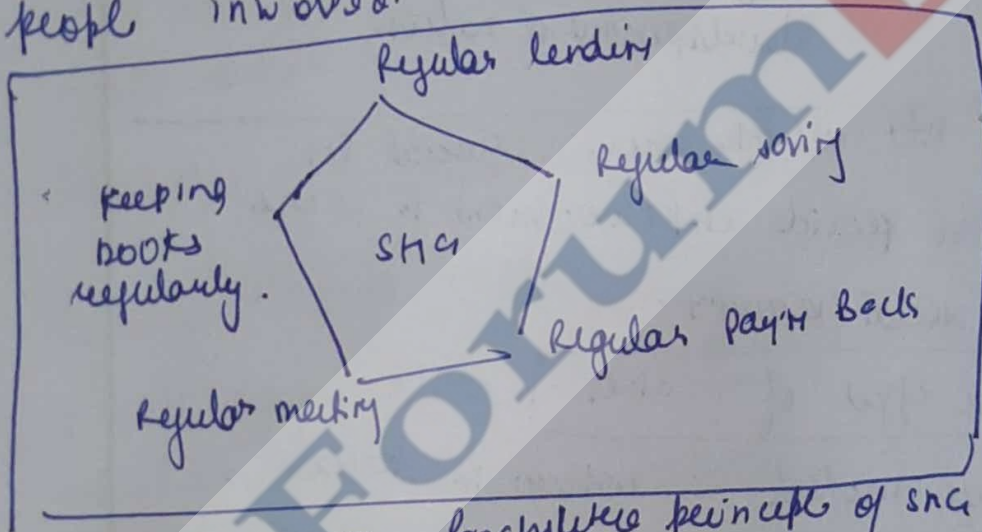 peopl
Regular lending
Regular saving
keeping
books
regularly.
SHG
Regular pay'n Back
Regular meeting
principle of SHG
Forum